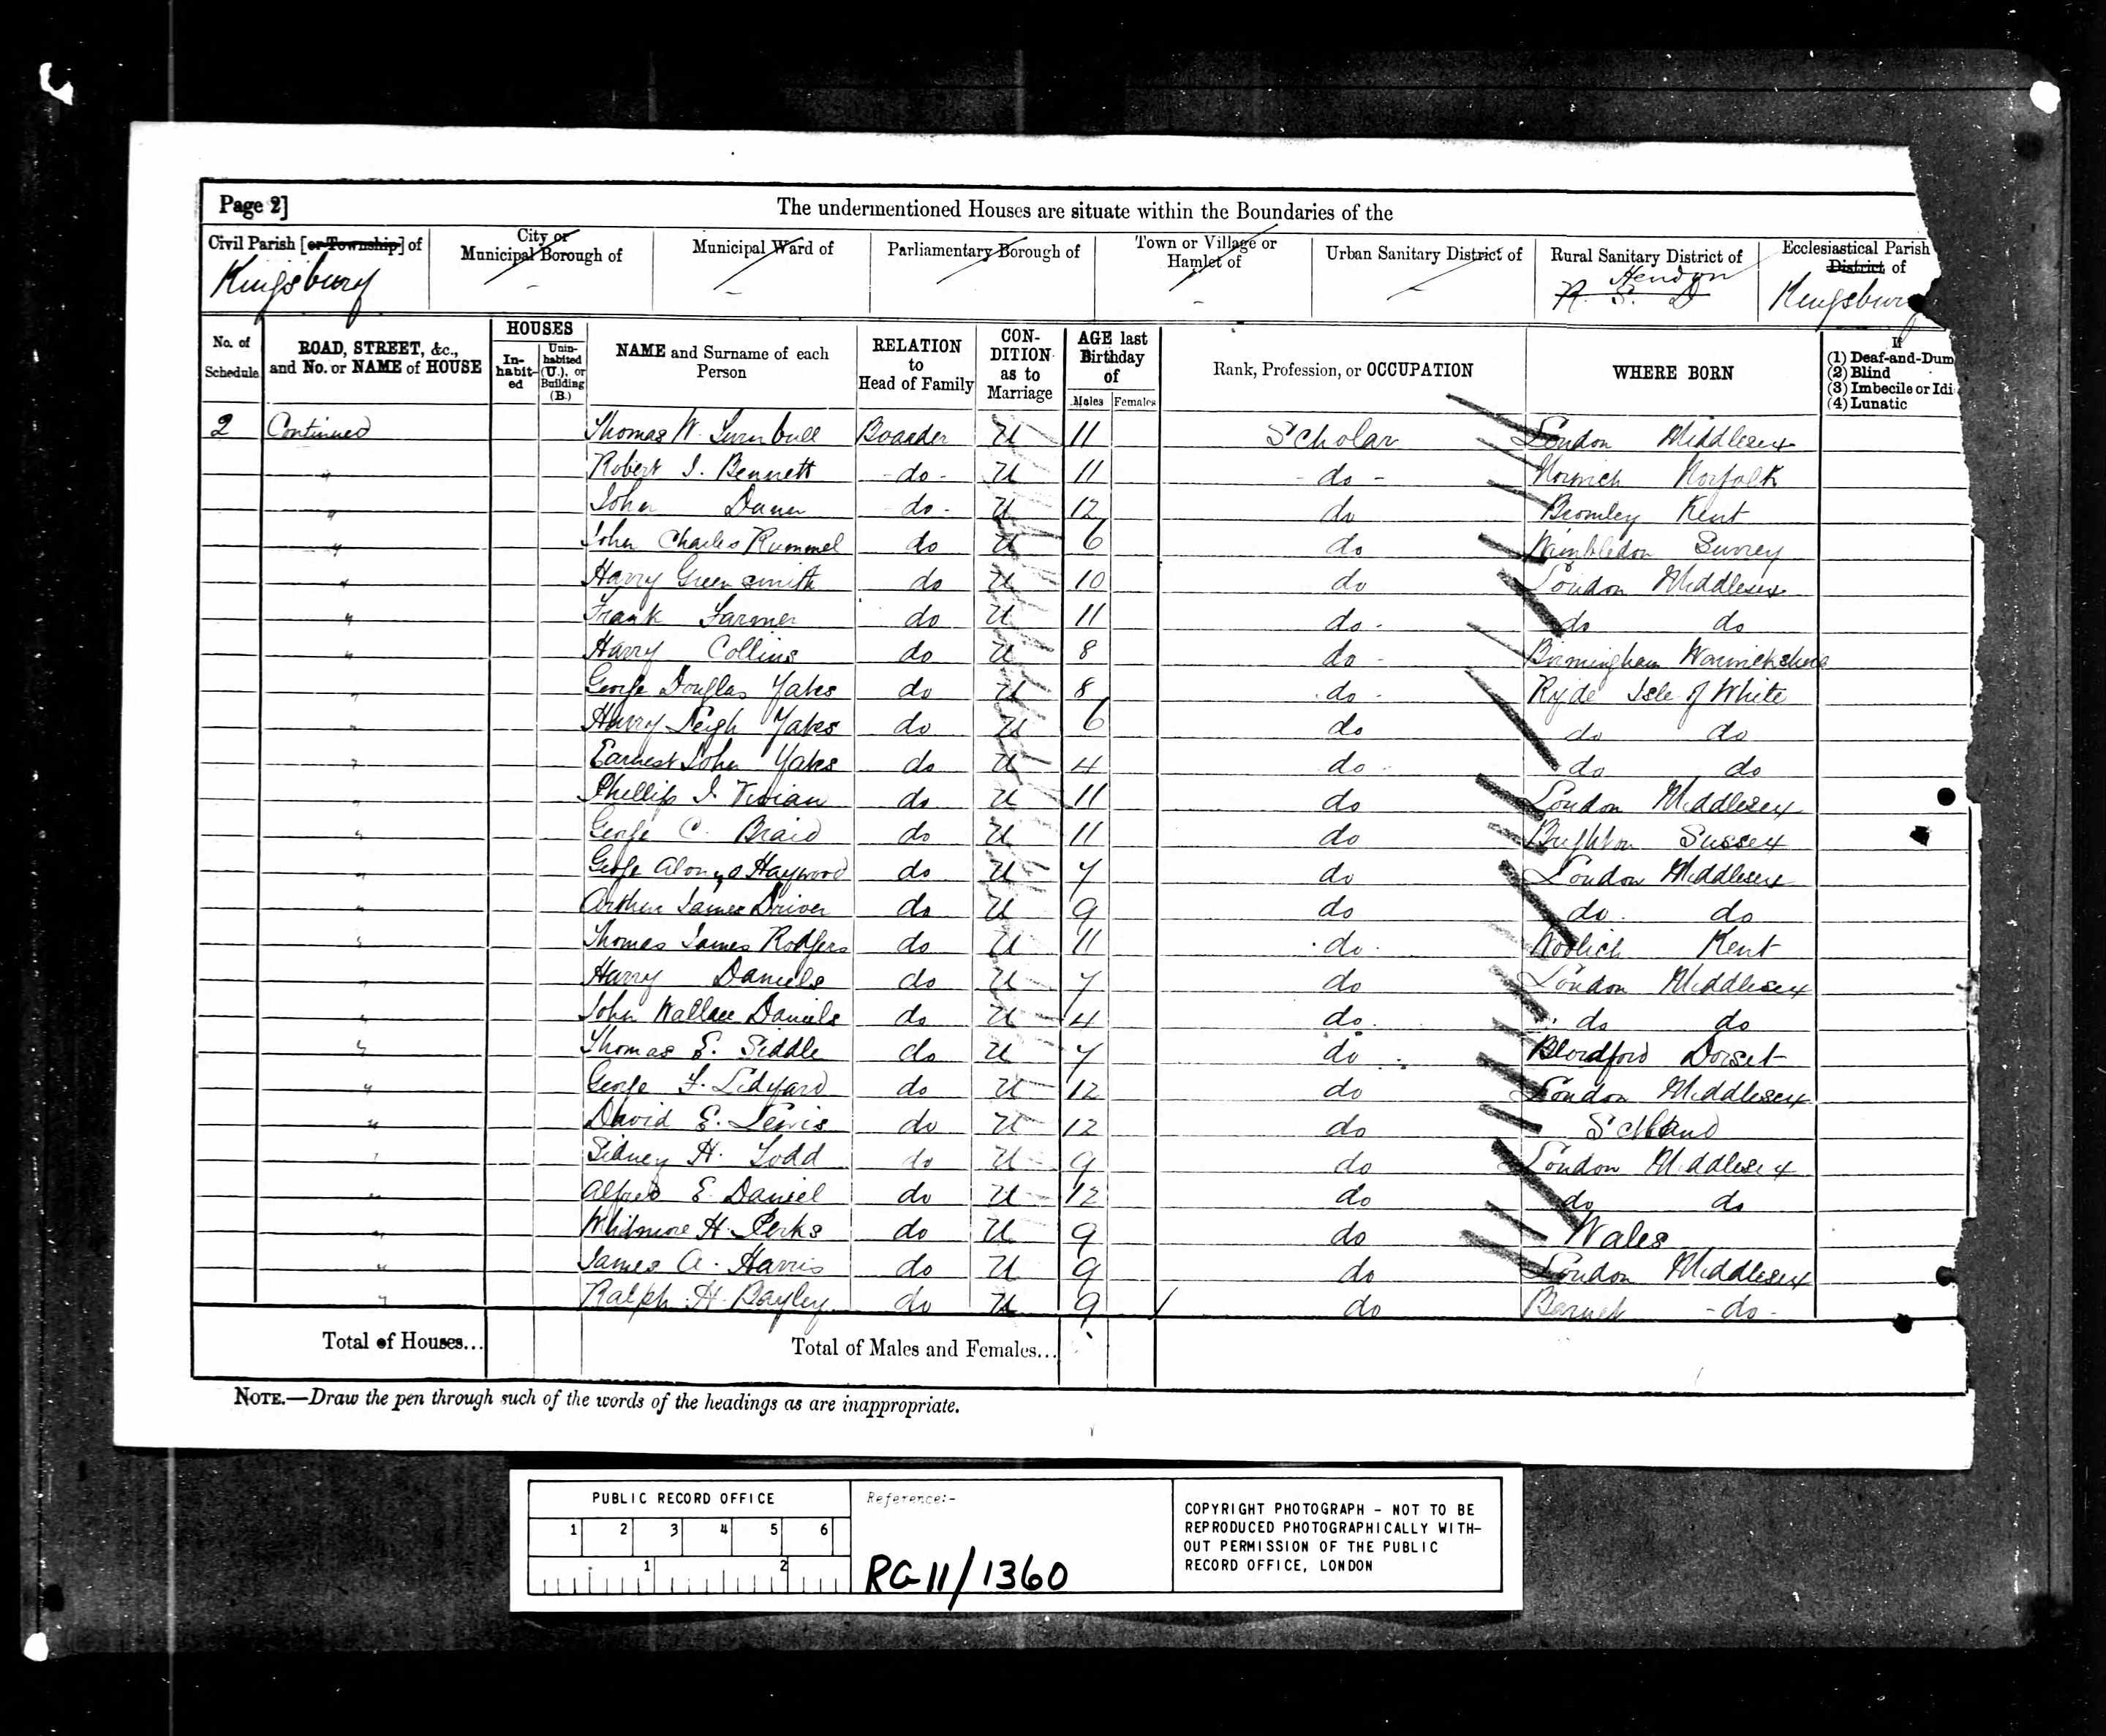 Page 2]
The undermentioned Houses are situate within the Boundaries of the
Civil Parish [or Township] of
City or Municipal Borough of
Municipal Ward of
Parliamentary Borough of
Town or Village or Hamlet of
Urban Sanitary District of
Rural Sanitary District of
Ecclesiastical Parish District of
Kingsbury
Hendon
R. S. D
Kingsbury
No. of Schedule
ROAD, STREET, &c., and No. or NAME of HOUSE
HOUSES
In-habit-ed
Unin-habited (U.), or Building (B.)
NAME and Surname of each Person
RELATION to Head of Family
CON-DITION as to Marriage
AGE last Birthday of
Males Females
Rank, Profession, or OCCUPATION
WHERE BORN
If
(1) Deaf-and-Dum
(2) Blind
(3) Imbecile or Idi
(4) Lunatic
2 Continued Thomas W. Turnbull Boarder U 11 Scholar London Middlesex
" Robert J. Bennett do U 11 do Norwich Norfolk
" John do U 12 do Bromley Kent
" John Charles Rummel do U 6 do Wimbledon Surrey
" Harry Greensmith do U 10 do London Middlesex
" Frank Farmer do U 11 do do do
" Harry Collins do U 8 do Birmingham Warwickshire
" George Douglas Yates do U 8 do Ryde Isle of White
" Harry Leigh Yates do U 6 do do do
" Earnest John Yates do U 4 do do do
" Phillip J. Vivian do U 11 do London Middlesex
" George C. Braid do U 11 do Brighton Sussex
" George Alonzo Haywood do U 7 do London Middlesex
" Arthur James Driver do U 9 do do do
" Thomas James Rodgers do U 11 do Woolich Kent
" Harry Daniels do U 7 do London Middlesex
" John Wallace Daniels do U 4 do do do
" Thomas E. Siddle do U 7 do Blandford Dorset
" George F. Lidyard do U 12 do London Middlesex
" David E. Lewis do U 12 do
" Sidney H. Todd do U 9 do London Middlesex
" Alfred E. Daniel do U 12 do do do
" Whitmore H. Perks do U 9 do Wales
" James A. Harris do U 9 do London Middlesex
" Ralph H. Bayley do U 9 do Barnet do
Total of Houses...
Total of Males and Females...
NOTE.—Draw the pen through such of the words of the headings as are inappropriate.
PUBLIC RECORD OFFICE
1 2 3 4 5 6
1 2
Reference:-
RG 11/1360
COPYRIGHT PHOTOGRAPH - NOT TO BE
REPRODUCED PHOTOGRAPHICALLY WITH-
OUT PERMISSION OF THE PUBLIC
RECORD OFFICE, LONDON